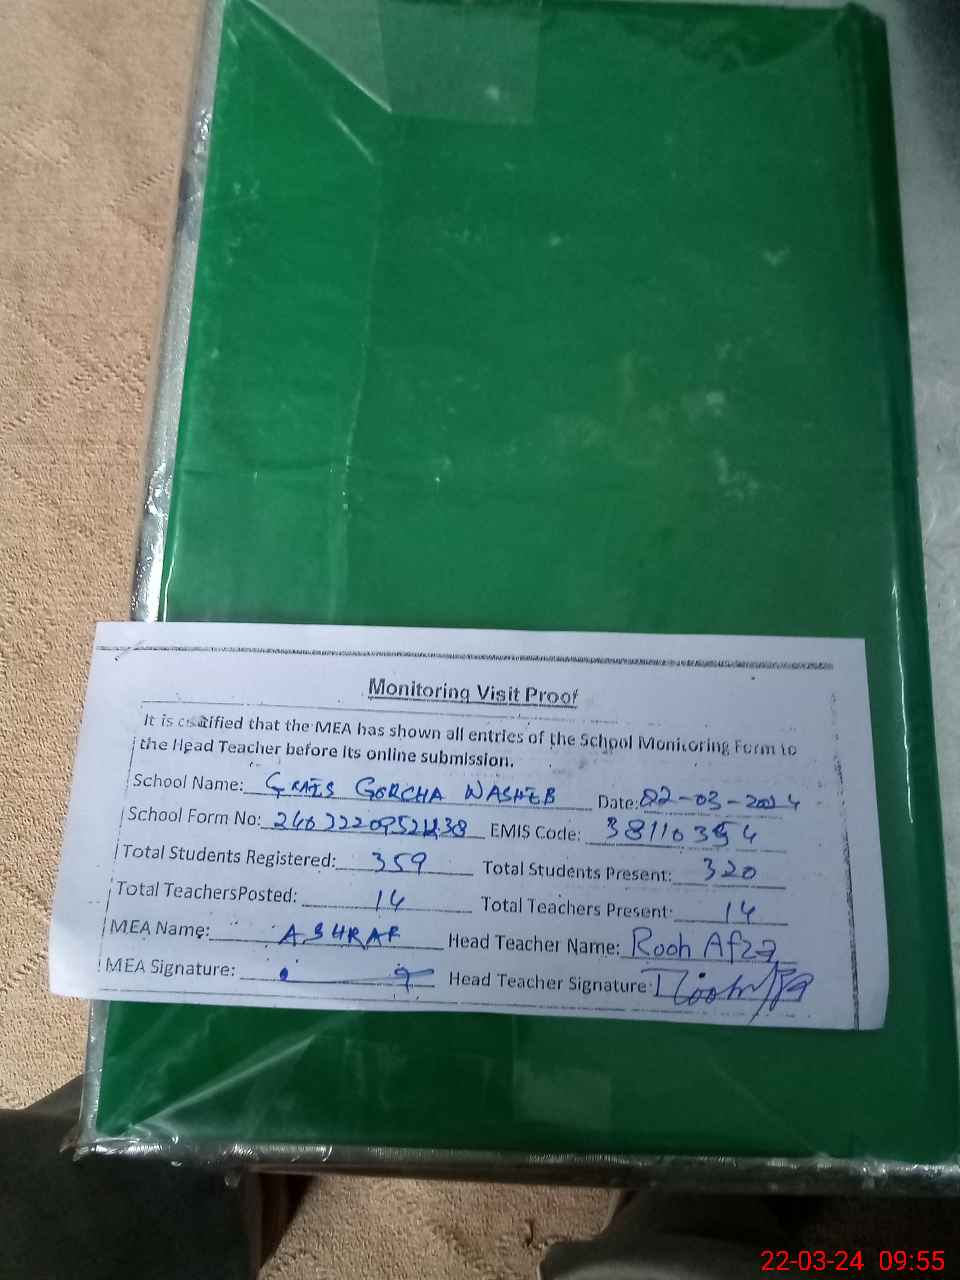 Monitoring Visit Proof
It is certified that the MEA has shown all entries of the School Monitoring Form to
the Head Teacher before its online submission.
School Name: GORCHA WASHEB Date: 22-03-2024
School Form No: EMIS Code: 38110354
Total Students Registered: 359 Total Students Present: 320
Total TeachersPosted: 14 Total Teachers Present: 14
MEA Name: ASHRAF Head Teacher Name: Rooh Afza
MEA Signature: Head Teacher Signature:
22-03-24 09:55